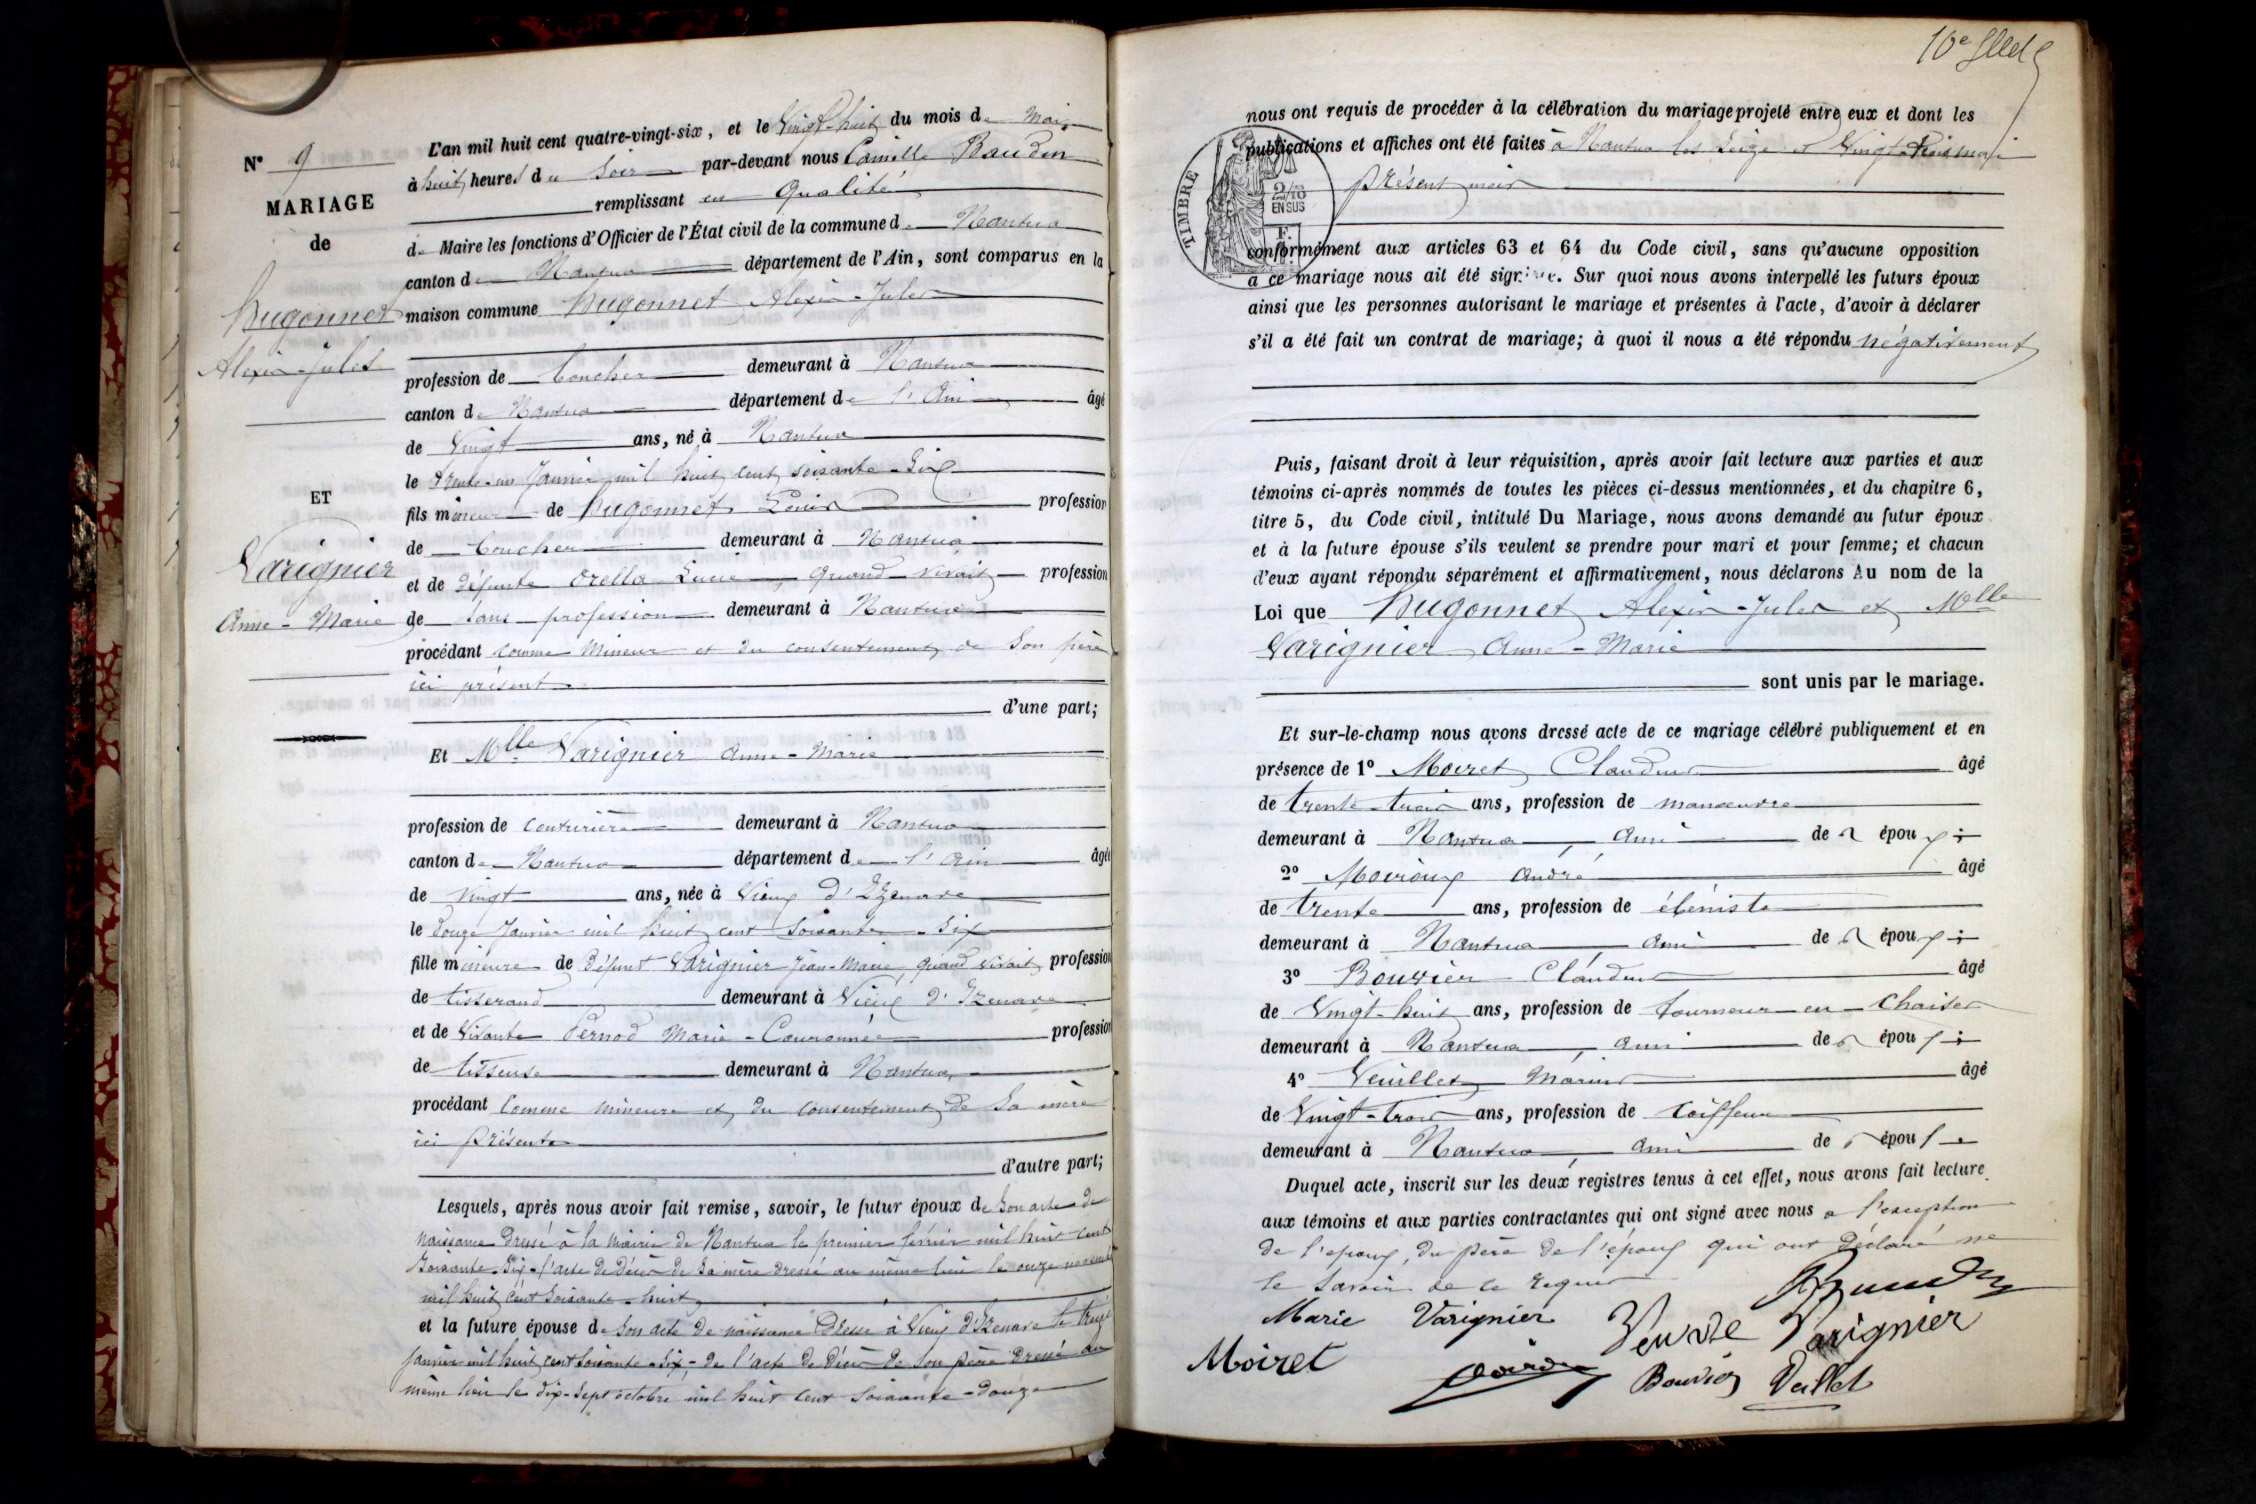 N° 9
MARIAGE
de
Hugonnet
Alexis-Jules
ET
Varignier
Anne-Marie
L'an mil huit cent quatre-vingt-six, et le Vingt-huit du mois de Mai
à huit heures du Soir par-devant nous Camille Baudin
remplissant en qualité
de Maire les fonctions d'Officier de l'État civil de la commune de Nantua
canton de Nantua département de l'Ain, sont comparus en la
maison commune Hugonnet Alexis-Jules
profession de demeurant à Nantua
canton de Nantua département de l'Ain âgé
de Vingt ans, né à Nantua
le trente-un Janvier mil huit cent soixante-Six
fils mineur de Hugonnet Louis profession
de demeurant à Nantua
et de défunte Orella Lucie, quand vivait profession
de sans profession demeurant à Nantua
procédant comme Mineur et du consentement de Son père
ici présent
d'une part;
Et Mlle Varignier Anne-Marie
profession de Couturière demeurant à Nantua
canton de Nantua département de l'Ain âgée
de Vingt ans, née à Vieux d'Izenave
le Douze Janvier mil huit cent Soixante-Six
fille mineure de défunt Varignier Jean-Marie, quand vivait profession
de tisserand demeurant à Vieux d'Izenave
et de Vivante Pernod Marie-Couronnée profession
de tisseuse demeurant à Nantua
procédant Comme mineure et du consentement de Sa mère
ici présente
d'autre part;
Lesquels, après nous avoir fait remise, savoir, le futur époux de Son acte de
naissance Dressé à la Mairie de Nantua le premier février mil huit cent
Soixante-Six - l'acte de Décès de Sa mère dressé au même lieu le onze novembre
mil huit cent Soixante-huit
et la future épouse de Son acte de naissance Dressé à Vieux d'Izenave le treize
Janvier mil huit cent Soixante-Six, - de l'acte de Décès de Son père Dressé au
même lieu le dix-Sept octobre mil huit cent Soixante-Douze
10e
nous ont requis de procéder à la célébration du mariage projeté entre eux et dont les
publications et affiches ont été faites à Nantua les Seize et Vingt-trois mai
présent mois
TIMBRE
2/10
EN SUS
F.
conformément aux articles 63 et 64 du Code civil, sans qu'aucune opposition
à ce mariage nous ait été signifiée. Sur quoi nous avons interpellé les futurs époux
ainsi que les personnes autorisant le mariage et présentes à l'acte, d'avoir à déclarer
s'il a été fait un contrat de mariage; à quoi il nous a été répondu négativement
Puis, faisant droit à leur réquisition, après avoir fait lecture aux parties et aux
témoins ci-après nommés de toutes les pièces ci-dessus mentionnées, et du chapitre 6,
titre 5, du Code civil, intitulé Du Mariage, nous avons demandé au futur époux
et à la future épouse s'ils veulent se prendre pour mari et pour femme; et chacun
d'eux ayant répondu séparément et affirmativement, nous déclarons Au nom de la
Loi que Hugonnet Alexis-Jules et Mlle
Varignier Anne-Marie
sont unis par le mariage.
Et sur-le-champ nous avons dressé acte de ce mariage célébré publiquement et en
présence de 1° Moiret Claudius âgé
de trente-trois ans, profession de manoeuvre
demeurant à Nantua, ami de l'époux;
2° André âgé
de trente ans, profession de ébéniste
demeurant à Nantua, ami de l'époux;
3° Bouvier Claudius âgé
de Vingt-huit ans, profession de tourneur en chaises
demeurant à Nantua, ami de l'époux;
4° Veuillet Marius âgé
de Vingt-trois ans, profession de Coiffeur
demeurant à Nantua, ami de l'époux
Duquel acte, inscrit sur les deux registres tenus à cet effet, nous avons fait lecture
aux témoins et aux parties contractantes qui ont signé avec nous à l'exception
de l'époux, du père de l'époux qui ont déclaré ne
le Savoir de ce requis
Marie Varignier Veuve Varignier
Moiret
Bouvier